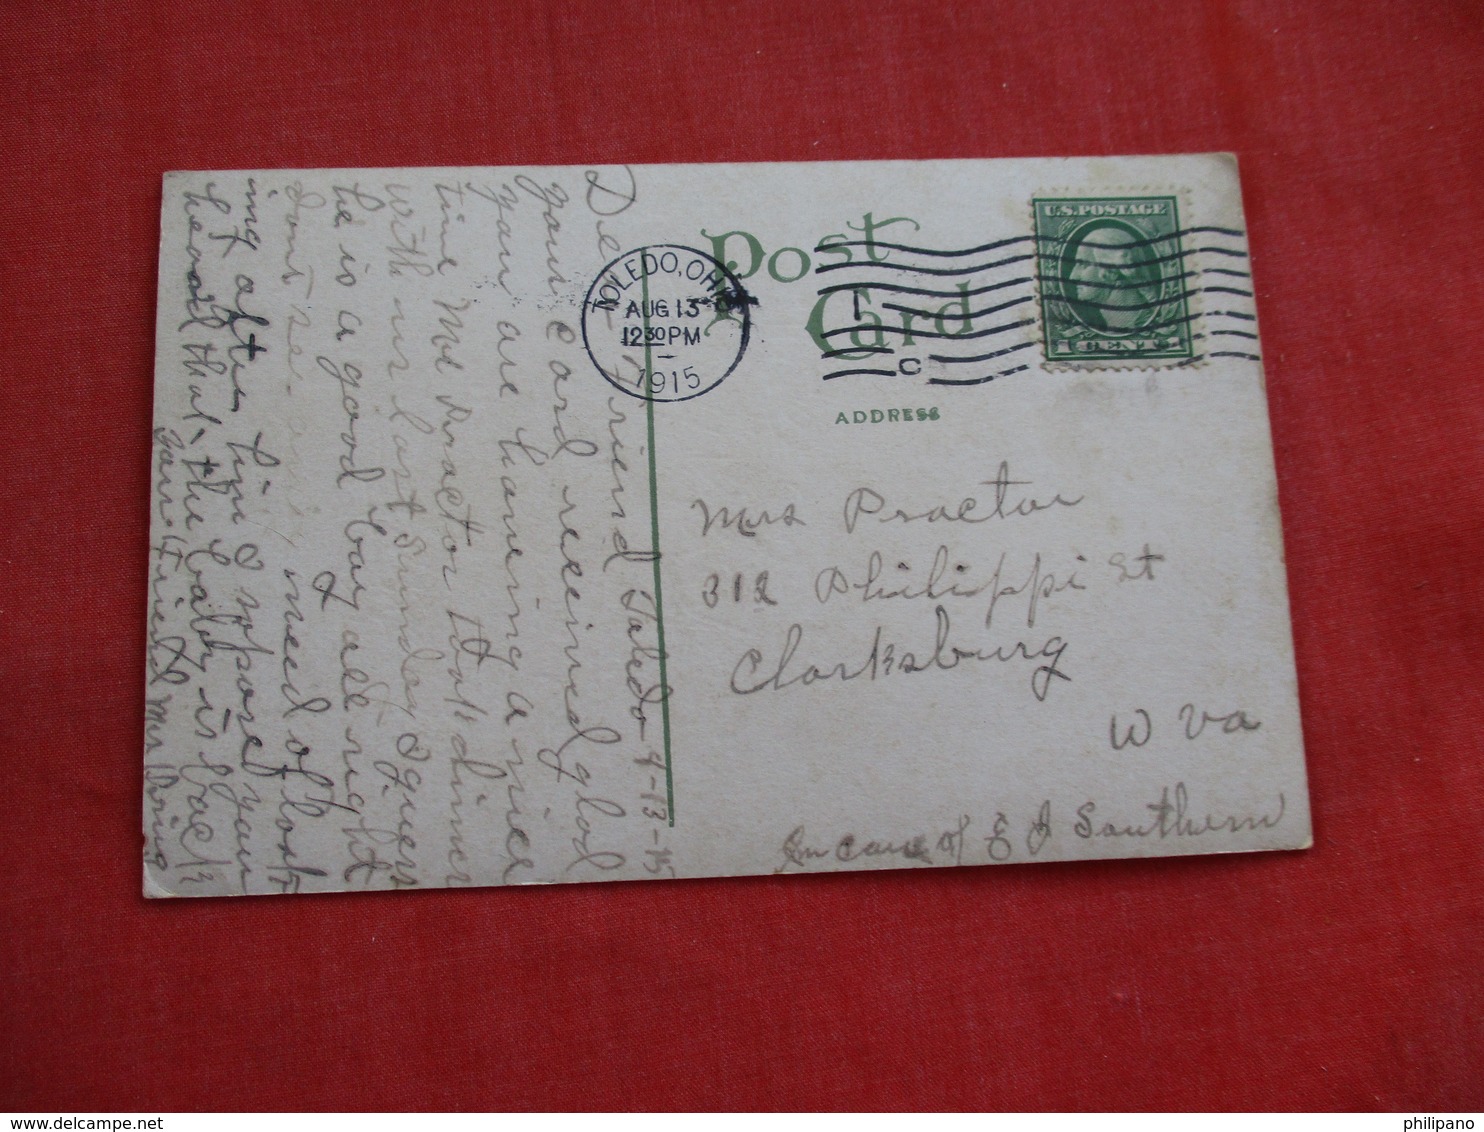 Post
Card
ADDRESS
TOLEDO, OHIO
AUG 13
12 30 PM
1915
1
C
U.S. POSTAGE
1 CENT 1
Mrs Proctor
312 Philippi St
Clarksburg
W Va
In care of E J Southern
Toledo 8-13-15
Dear Friend
your card received glad
you are haveing a nice
time Mr Proctor took dinner
with us last Sunday I guess
he is a good boy all right
dont see any need of look
ing after him I suposed you
heard that the baby is back
your Friend Mrs
philipano